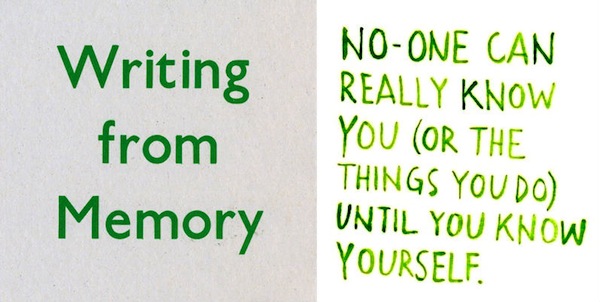 Writing
from
Memory
NO-ONE CAN
REALLY KNOW
YOU (OR THE
THINGS YOU DO)
UNTIL YOU KNOW
YOURSELF.